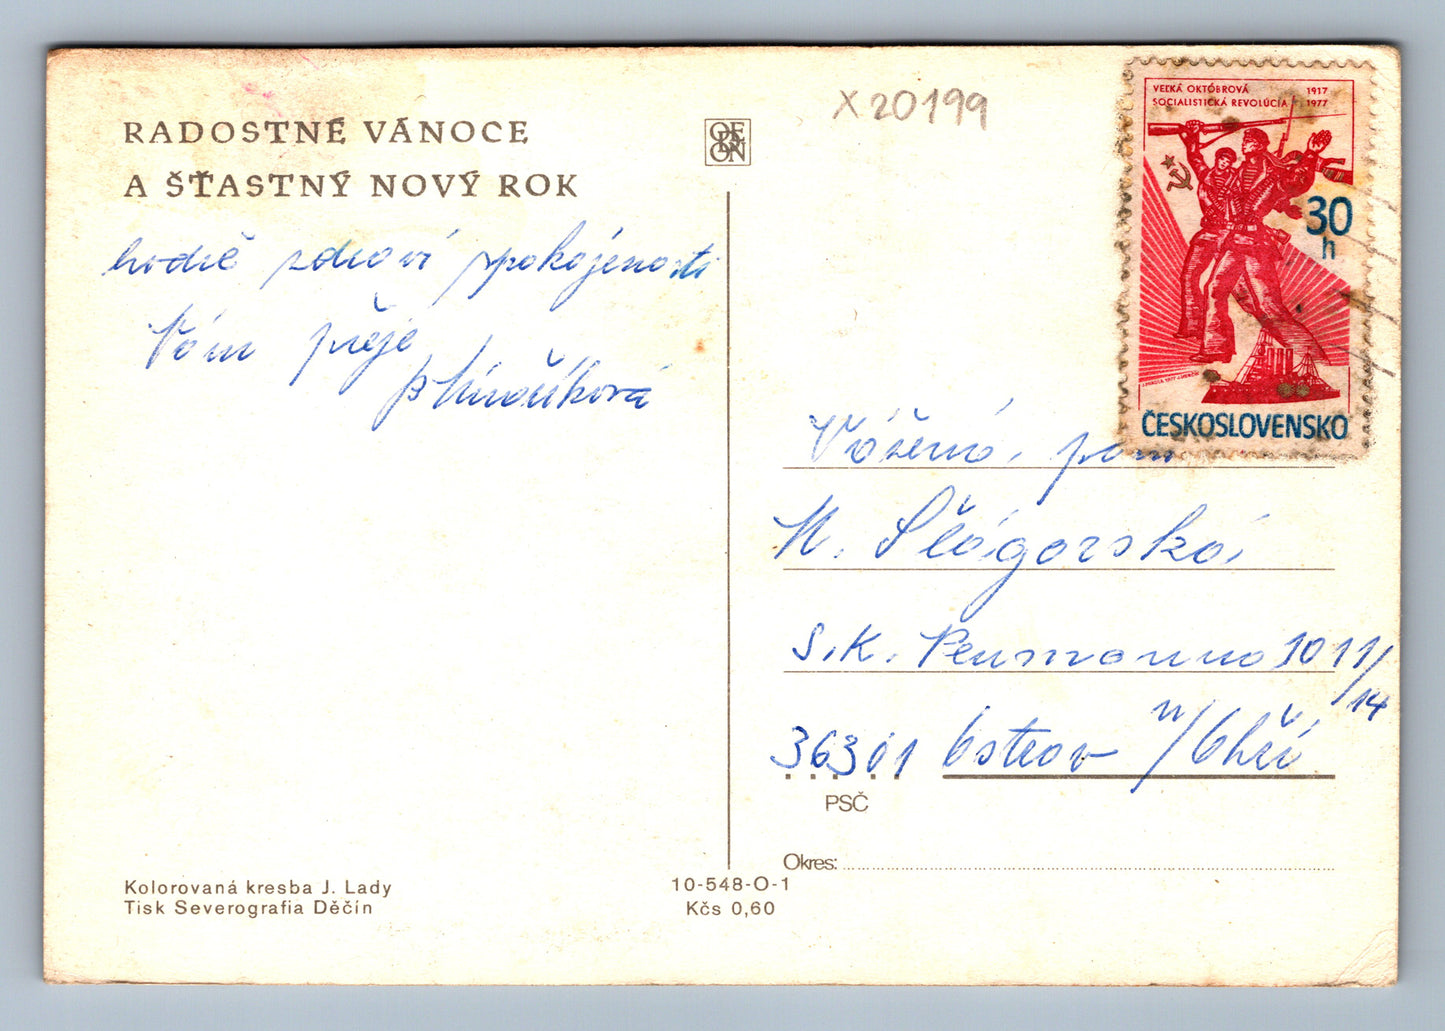 RADOSTNÉ VÁNOCE
A ŠŤASTNÝ NOVÝ ROK
hodně zdraví spokojenosti
Vám přeje
ODEON
X 20199
VEĽKÁ OKTÓBROVÁ 1917
SOCIALISTICKÁ REVOLÚCIA 1977
30
h
ČESKOSLOVENSKO
Vážená, paní
S.K. Neumanna 1011/
14
36301 Ostrov n/Ohří
PSČ
Okres:
Kolorovaná kresba J. Lady
Tisk Severografia Děčín
10-548-O-1
Kčs 0,60